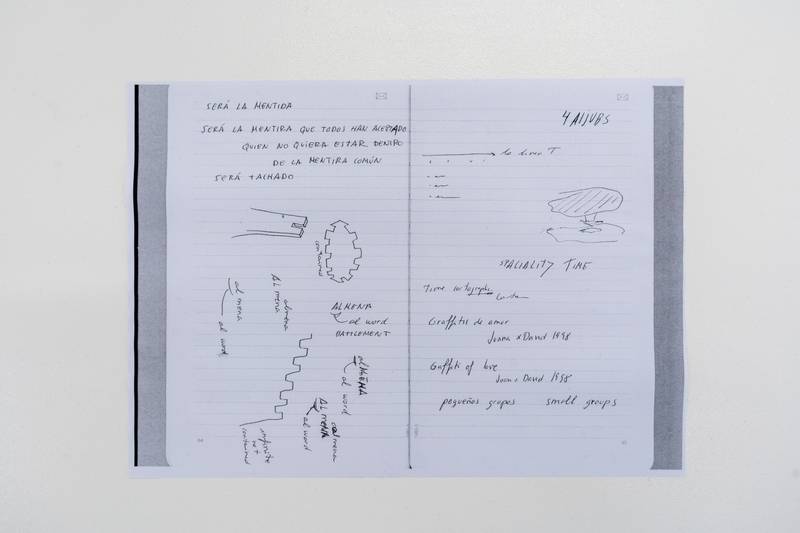 SERÁ LA MENTIDA
SERÁ LA MENTIRA QUE TODOS HAN ACEPTADO
QUIEN NO QUIERA ESTAR DENTRO
DE LA MENTIRA COMÚN
SERÁ TACHADO
continuous
ALMENA
al word
BATTLEMENT
almena
AL mena
al mena
al word
al MENA
al word
almena
AL MENA
al word
infinite
not
continuous
4 AljUBS
la linea T
SPACIALITY TIME
Time cartography
Graffitis de amor
Juana x David 1998
Gaffiti of love
Juana x David 1998
pequeños grupos small groups